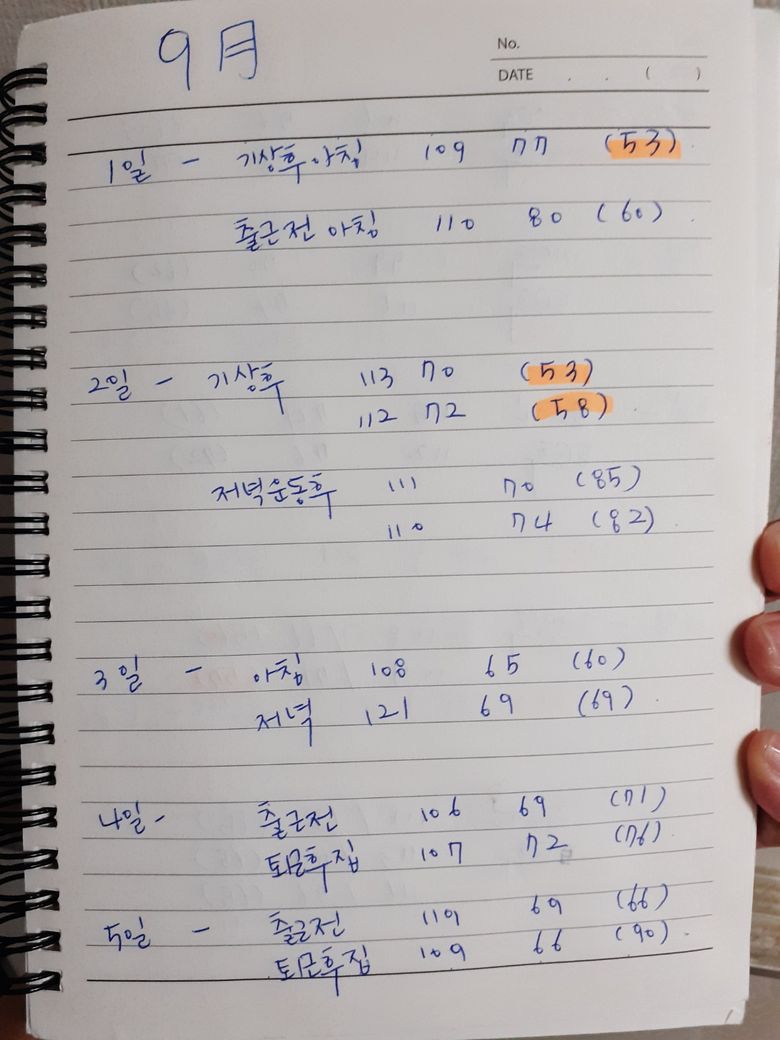 9月
No.
DATE . . ( )
1일 - 기상후아침 109 77 (53)
출근전 아침 110 80 (60)
2일 - 기상후 113 70 (53)
112 72 (58)
저녁운동후 111 70 (85)
110 74 (82)
3일 - 아침 108 65 (60)
저녁 121 69 (69)
4일 - 출근전 106 69 (71)
퇴근후집 107 72 (76)
5일 - 출근전 119 69 (66)
퇴근후집 109 66 (90)